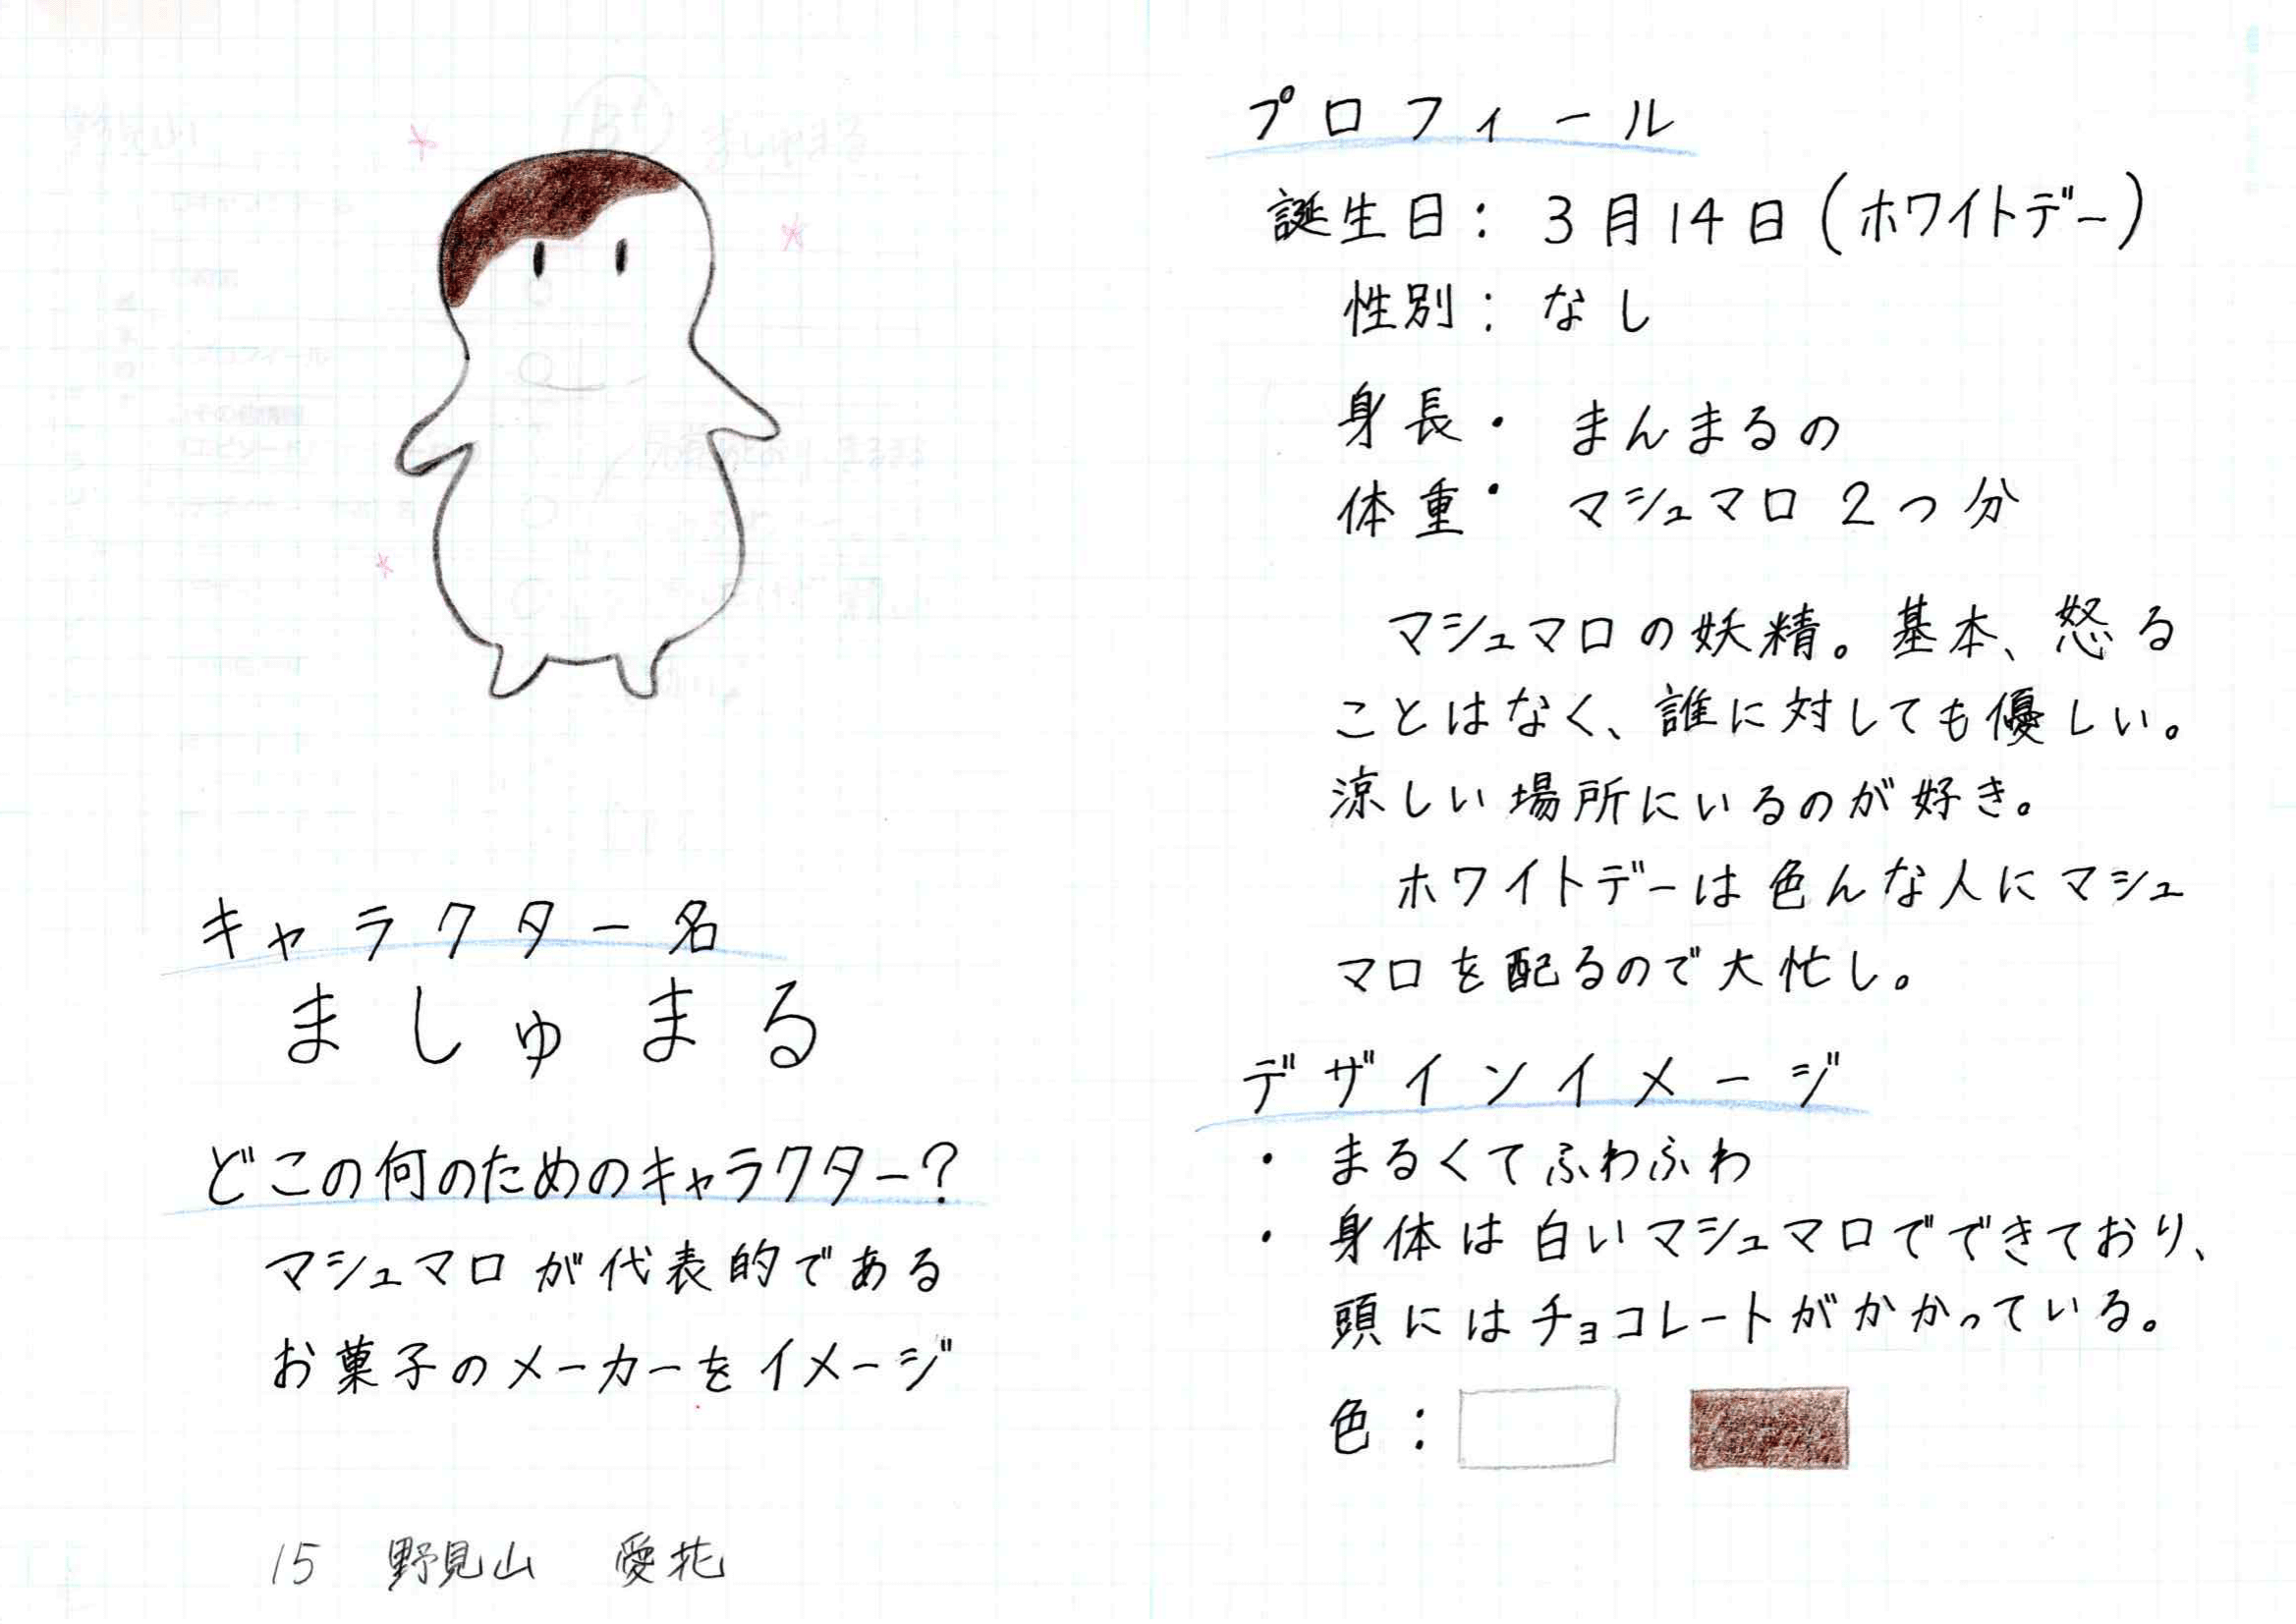 キャラクター名
ましゅまる
どこの何のためのキャラクター?
マシュマロが代表的である
お菓子のメーカーをイメージ
15 野見山 愛花
プロフィール
誕生日: 3月14日(ホワイトデー)
性別: なし
身長・ まんまるの
体重・ マシュマロ2つ分
マシュマロの妖精。基本、怒る
ことはなく、誰に対しても優しい。
涼しい場所にいるのが好き。
ホワイトデーは色んな人にマシュ
マロを配るので大忙し。
デザインイメージ
・ まるくてふわふわ
・ 身体は白いマシュマロでできており、
頭にはチョコレートがかかっている。
色: